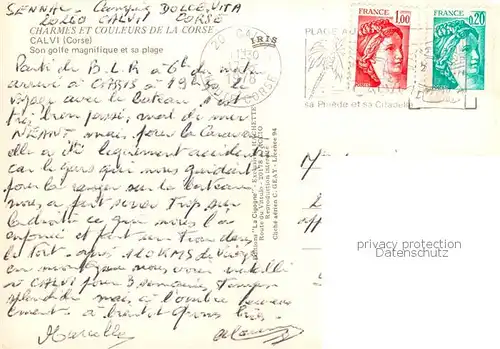 SENNAC - Camping DOLCE VITA
20260 CALVI CORSE
CHARMES ET COULEURS DE LA CORSE
CALVI (Corse)
Son golfe magnifique et sa plage
IRIS
Parti de B.L.R à 6h du matin
arrivé à 19h30 le
voyage avec le bateau, s'est
très bien passé, mal de mer
NÉANT mais, pour la caravane
elle a été légèrement accidentée
car le gars qui nous guidait
pour la ranger sur le bateau
nous a fait serrer trop sur
la droite ce qui nous l'a
enfoncé et fait un trou dans
le toit. après 120 KMS de
en montagne nous voici installé
à CALVI pour 3 semaines, temps
splendide mais, à l'ombre
à bientôt
Marcelle
Editions "La Cigogne" - Exclusivité HACHETTE
Route du Vittulo - 20178 AJACCIO
Reproduction interdite
Cliché aérien C. GEAY - Licence 94
20 CALVI
CORSE
PLAGE
sa Pinède et sa Citadelle
FRANCE
1,00
FRANCE
0,20
privacy protection
Datenschutz